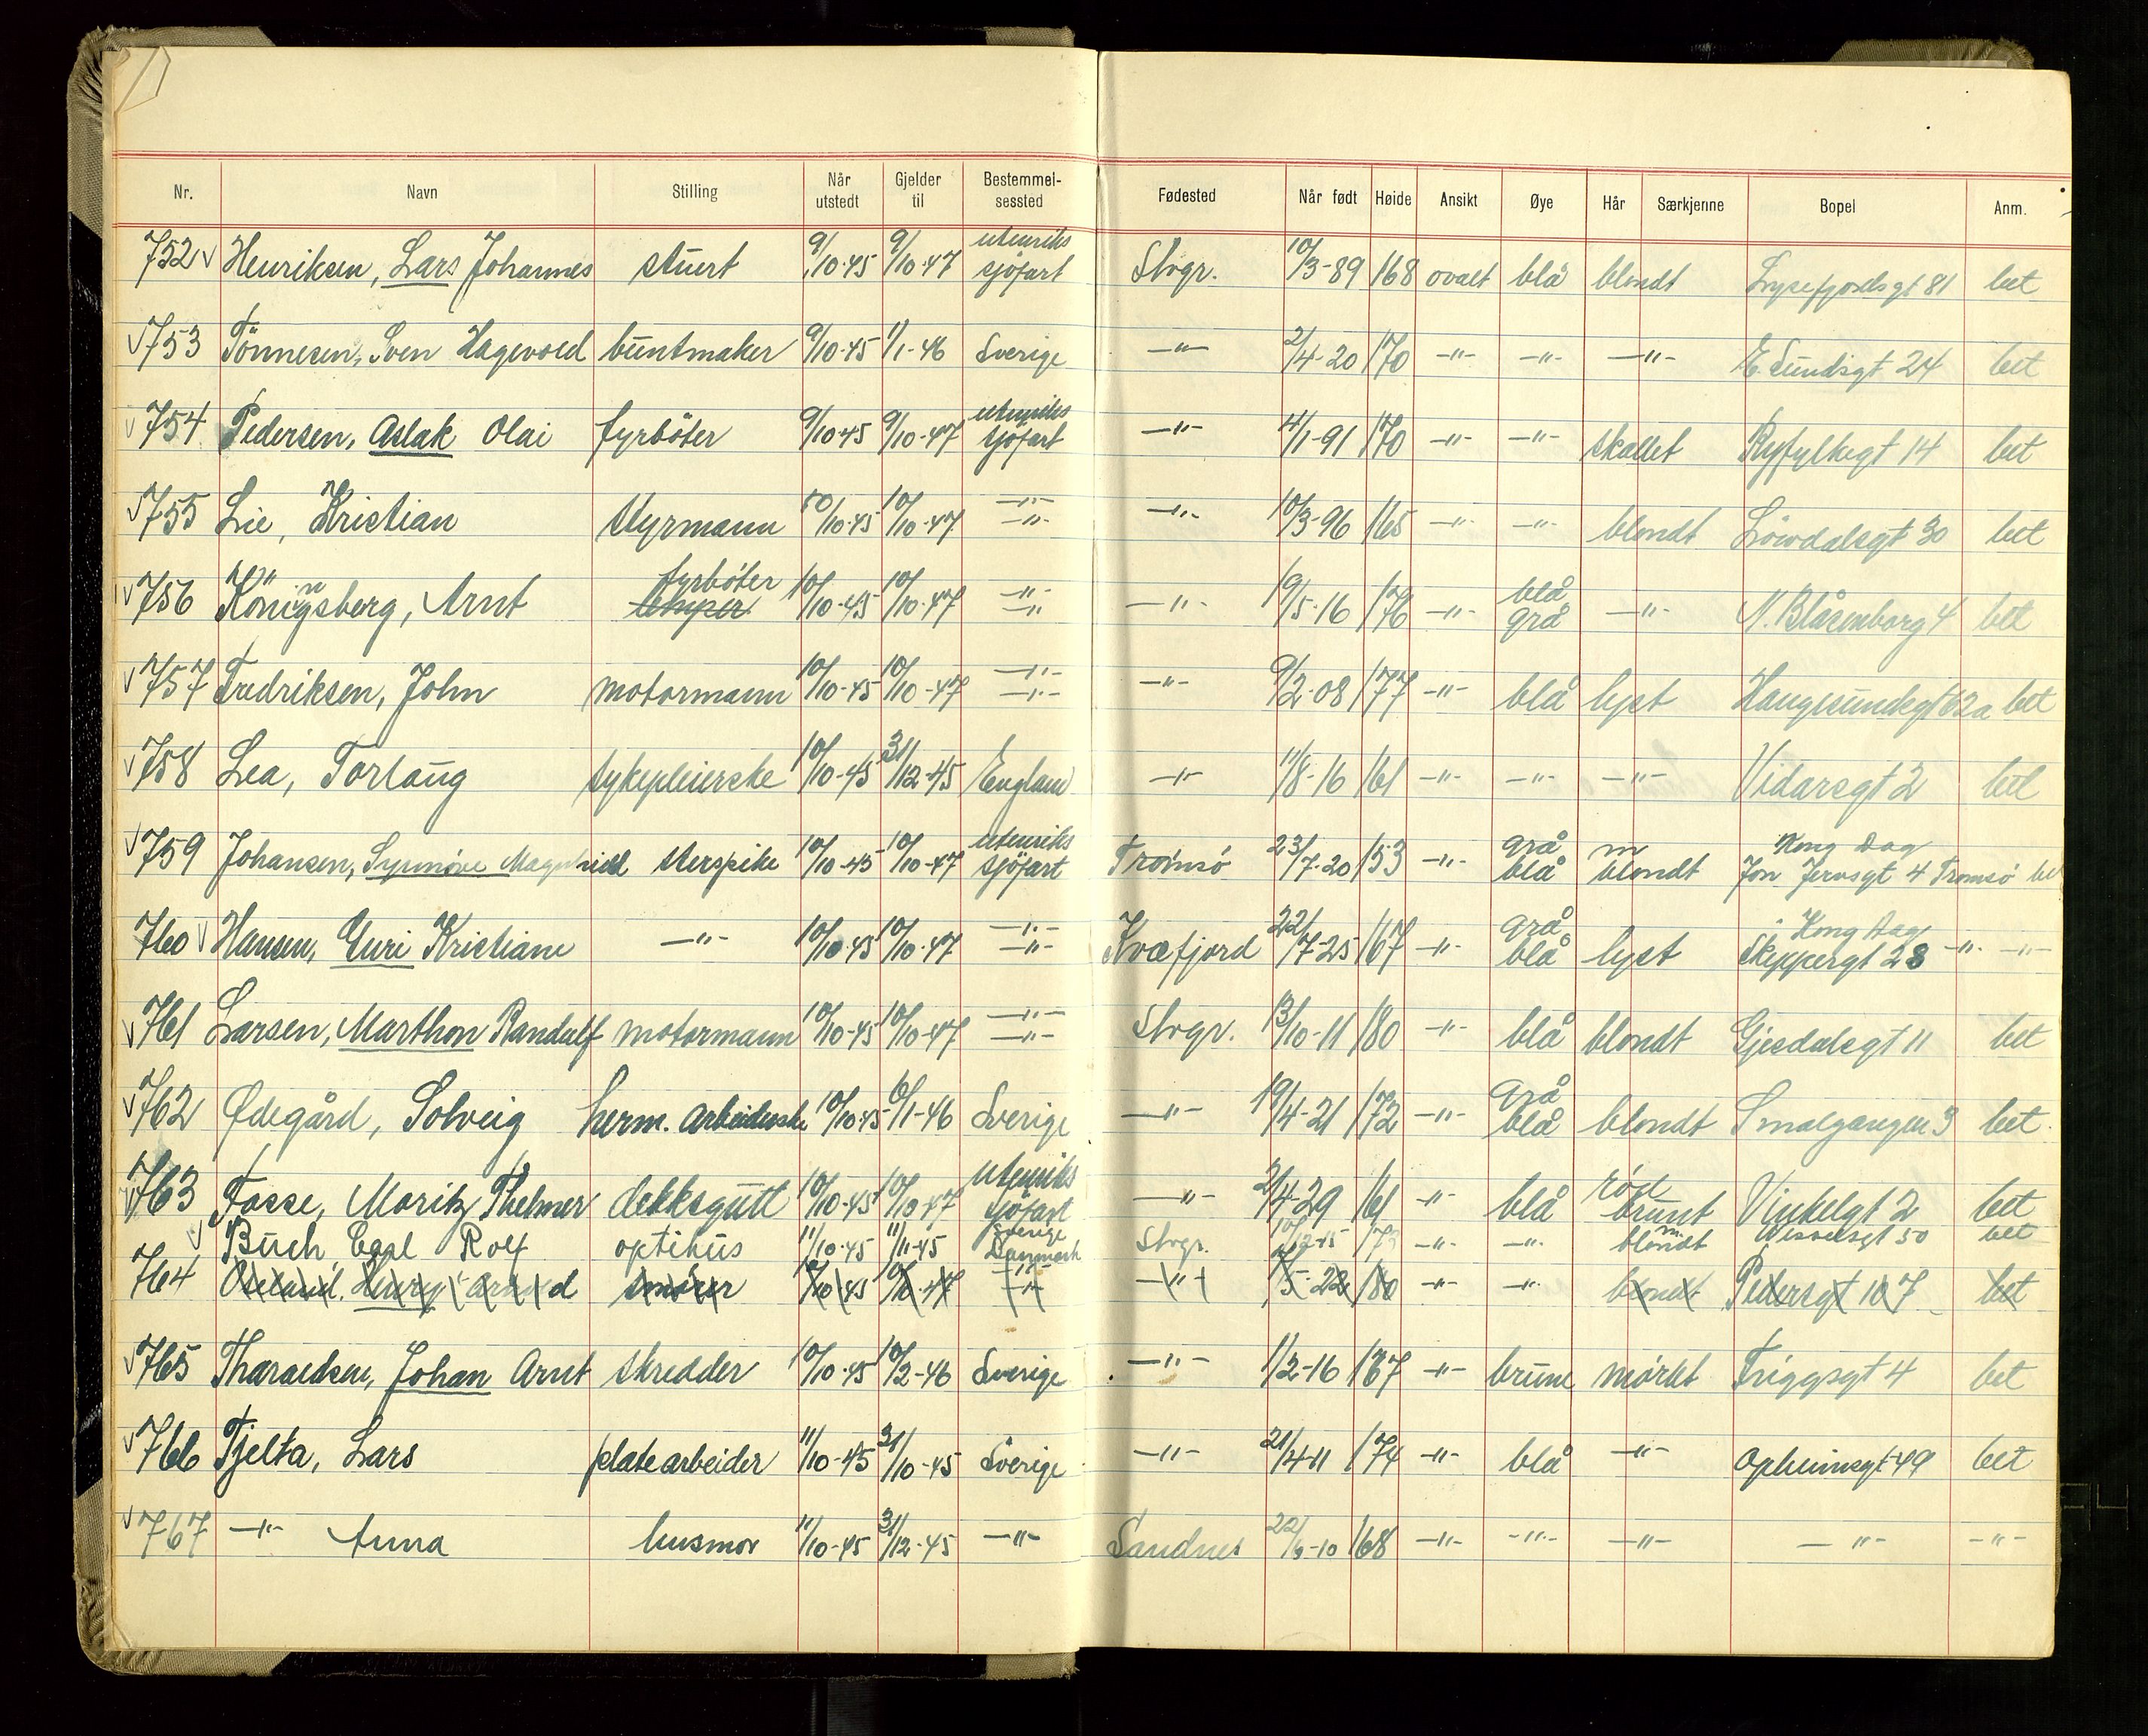 Nr. Navn Stilling Når utstedt Gjelder til Bestemmelsessted Fødested Når født Høide Ansikt Øye Hår Særkjenne Bopel Anm.
752 √ Henriksen, Lars Johannes stuert 9/10-45 9/10-47 utenriks sjöfart Stvgr. 10/3-89 168 ovalt blå blondt Lysefjordsgt 81 bet
√ 753 Tönnesen, Sven Hagevold buntmaker 9/10-45 1/1-46 Sverige -"- 2/4-20 170 -"- -"- -"- Ø. Sundsgt 24 bet
√ 754 Pedersen, Aslak Olai fyrböter 9/10-45 9/10-47 utenriks sjöfart -"- 4/1-91 170 -"- -"- skallet Ryfylkegt 14 bet
√ 755 Lie, Kristian styrmann 10/10-45 10/10-47 -"- -"- -"- 10/3-96 165 -"- -"- blondt Lövdalsgt 30 bet
√ 756 Königsberg, Arnt fyrböter 10/10-45 10/10-47 -"- -"- -"- 19/5-16 176 -"- blå grå -"- N. Blåsenborg 4 bet
√ 757 Fredriksen, John motormann 10/10-45 10/10-47 -"- -"- -"- 9/2-08 177 -"- blå lyst Haugesundsgt 62a bet
√ 758 Lea, Torlaug sykepleierske 10/10-45 31/12-45 England -"- 11/8-16 161 -"- -"- -"- Vidarsgt 2 bet
√ 759 Johansen, Synnöve Magnhild sterspike 10/10-45 10/10-47 utenriks sjöfart Tromsö 23/7-20 153 -"- grå blå m blondt Kong Dag Jon Jernsgt 4 Tromsö bet
760 √ Hansen, Guri Kristiane -"- 10/10-45 10/10-47 -"- -"- Kvæfjord 22/7-25 167 -"- grå blå lyst Kong Dag Skippergt 28 -"- -"-
√ 761 Larsen, Marthon Randulf motormann 10/10-45 10/10-47 -"- -"- Stvgr. 13/10-11 180 -"- blå blondt Gjesdalsgt 11 bet
√ 762 Ødegård, Solveig herm. arbeiderske 10/10-45 10/1-46 Sverige -"- 19/4-21 172 -"- grå blå blondt Smalgangen 3 bet.
√ 763 Fosse, Moritz Thelmer dekksgutt 10/10-45 10/10-47 utenriks sjöfart -"- 2/4-29 161 -"- blå röd brunt Vinkelgt 2 bet
√ Buch Carl Rolf optikus 11/10-45 11/11-45 Sverige Danmark Stvgr. -"- -"- m. blondt bet
764 smörer 10/10-45 10/10-47 -"- -"- -"- 180 -"- -"- blondt Pedersgt 107 bet
√ 765 Tharaldsen, Johan Arnt skredder 10/10-45 10/2-46 Sverige -"- 1/2-16 167 -"- brune mörkt Friggsgt 4 bet
√ 766 Tjelta, Lars platearbeider 11/10-45 31/10-45 Sverige -"- 21/4-11 174 -"- blå -"- Opheimsgt 49 bet
√ 767 -"- Anna husmor 11/10-45 31/12-45 -"- Sandnes 22/9-10 168 -"- -"- -"- -"- -"-